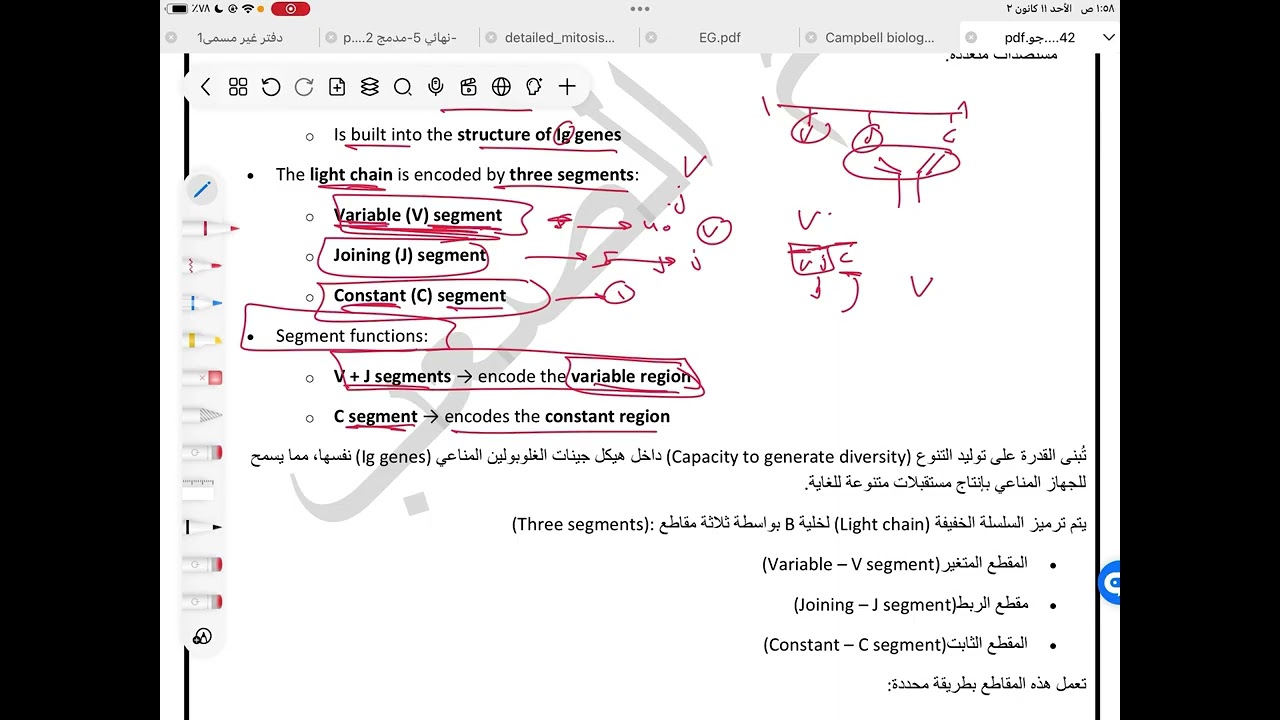 ٪٧٨
١:٥٨ ص الأحد ١١ كانون ٢
دفتر غير مسمى1
p....2 نهائي 5-مدمج-
detailed_mitosis...
EG.pdf
Campbell biolog...
42....جو.pdf
مستضدات متعددة.
Is built into the structure of Ig genes
The light chain is encoded by three segments:
V
j
Variable (V) segment
40
V
Joining (J) segment
5
j
Constant (C) segment
1
Segment functions:
V + J segments → encode the variable region
C segment → encodes the constant region
V J C
V
V J C
V
تُبنى القدرة على توليد التنوع (Capacity to generate diversity) داخل هيكل جينات الغلوبولين المناعي (Ig genes) نفسها، مما يسمح
للجهاز المناعي بإنتاج مستقبلات متنوعة للغاية.
يتم ترميز السلسلة الخفيفة (Light chain) لخلية B بواسطة ثلاثة مقاطع :(Three segments)
المقطع المتغير(Variable – V segment)
مقطع الربط(Joining – J segment)
المقطع الثابت(Constant – C segment)
تعمل هذه المقاطع بطريقة محددة: